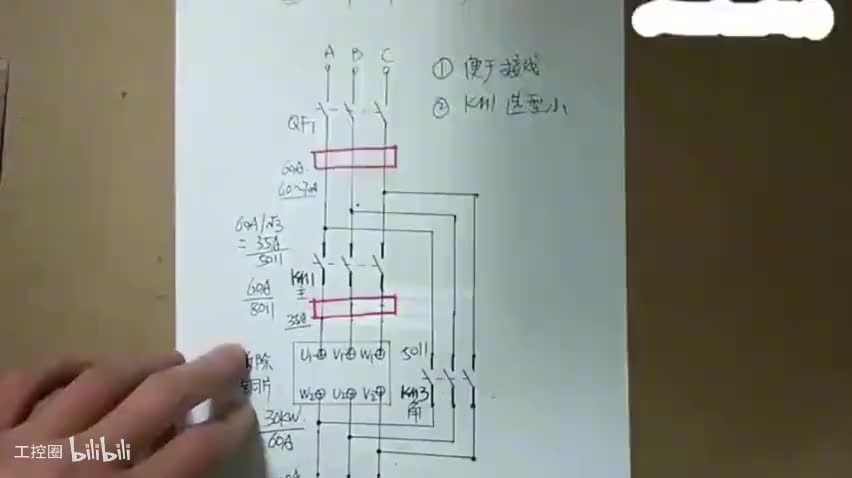 A B C
① 便于接线
② KM1 选型小
QF1
60A
60A/√3
=35A
5011
KM1
主
60A
8011
35A
U1 V1 W1
5011
W2 U2 V2
KM3
角
30KW
60A
工控圈 bilibili